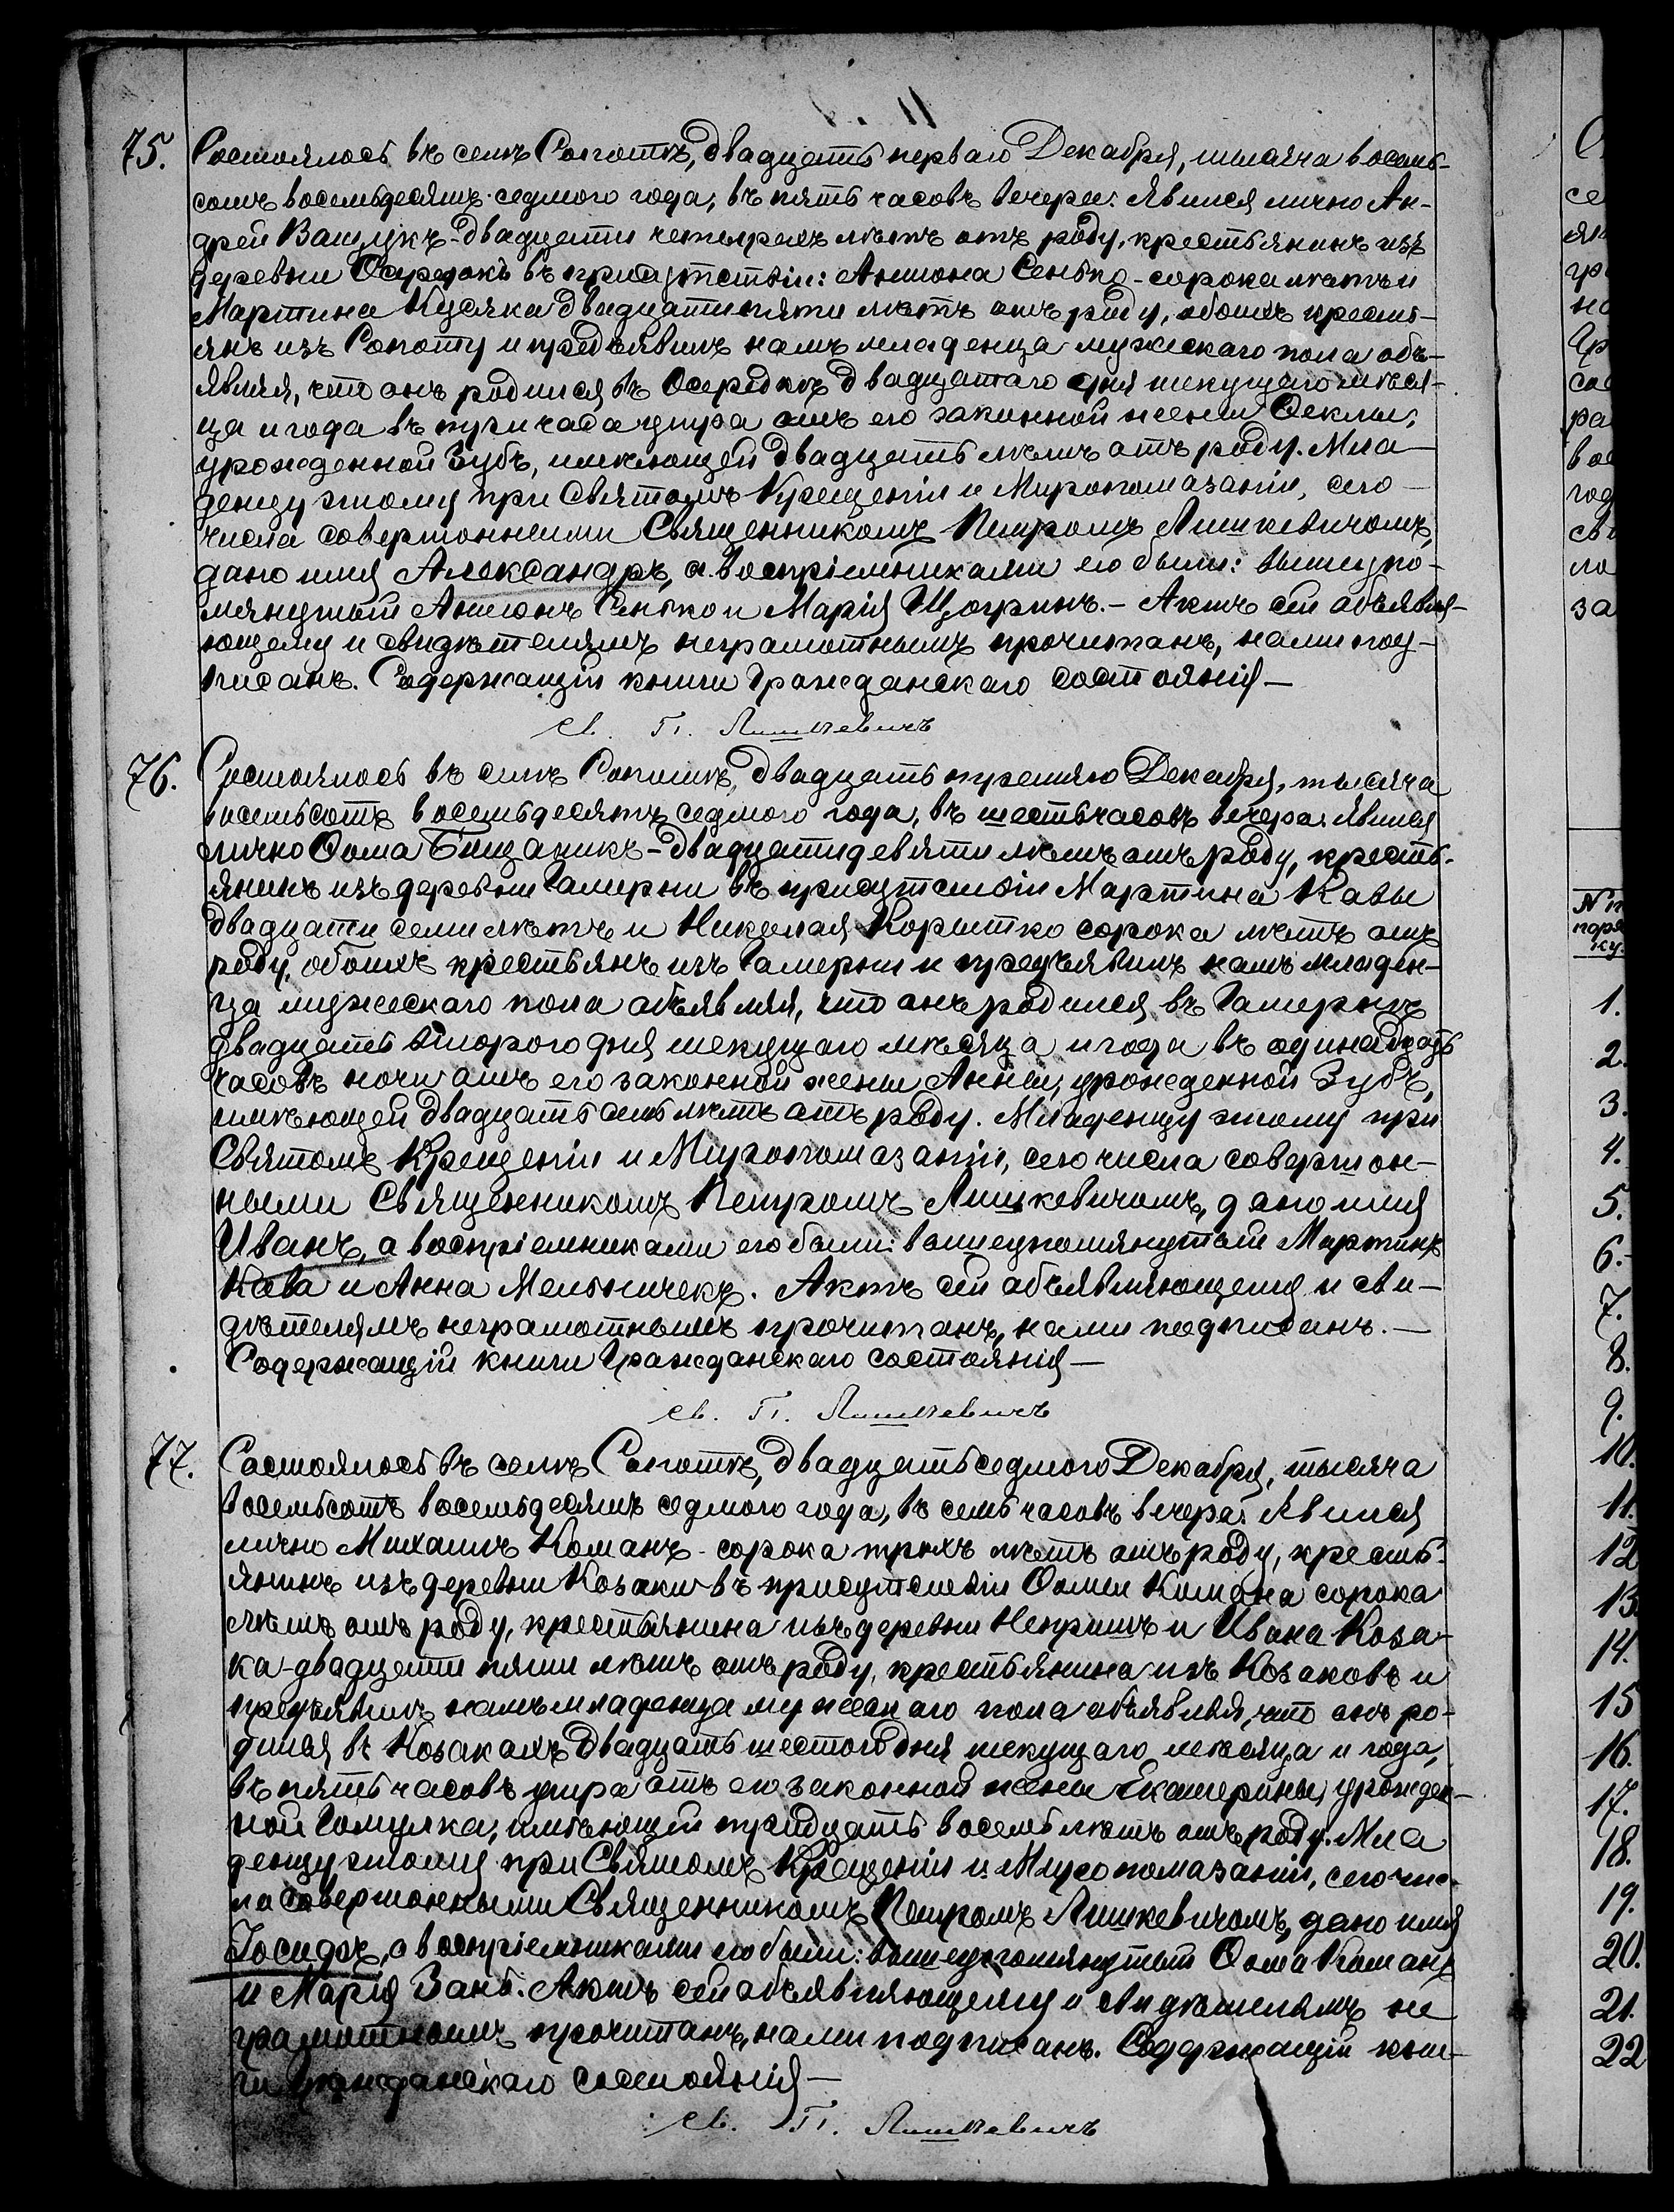 75. Состоялось въ селѣ Сопотѣ, двадцать перваго Декабря, тысяча восемь-
сотъ восемьдесятъ седмого года, въ пять часовъ вечера. Явился лично Ан-
дрей Ващукъ - двадцати четырехъ лѣтъ отъ роду, крестьянинъ изъ
деревни Осередокъ въ присутствіи: Антона Сенько - сорока лѣтъ и
Мартина Кусяка двадцати пяти лѣтъ отъ роду, обоихъ кресть-
янъ изъ Сопоту и предъявилъ намъ младенца мужескаго пола объ-
являя, что онъ родился въ Осередкѣ двадцатаго дня текущаго мѣся-
ца и года въ три часа утра отъ его законной жены Ѳеклы,
урожденной Зубъ, имѣющей двадцать лѣтъ отъ роду. Мла-
денцу этому при Святомъ Крещеніи и Миропомазаніи, сего
числа совершонными Священникомъ Петромъ Лишкевичомъ,
дано имя Александръ, а воспріемниками его были: вышеупо-
мянутый Антонъ Сенько и Марія - Актъ сей объявля-
ющему и свидѣтелямъ неграмотнымъ прочитанъ, нами под-
писанъ. Содержащій книги Гражданскаго состоянія —
св. П. Лишкевичъ
76. Состоялось въ селѣ Сопотѣ, двадцать третяго Декабря, тысяча
восемьсотъ восемьдесятъ седмого года, въ шесть часовъ вечера. Явился
лично Ѳома - двадцати девяти лѣтъ отъ роду, кресть-
янинъ изъ деревни Гамерни въ присутствіи Мартина Кавы
двадцати семи лѣтъ и Николая Корытко сорока лѣтъ отъ
роду, обоихъ крестьянъ изъ Гамерни и предъявилъ намъ младен-
ца мужескаго пола объявляя, что онъ родился въ Гамернѣ
двадцать второго дня текущаго мѣсяца и года въ одинадцать
часовъ ночи отъ его законной жены Анны, урожденной Зубъ,
имѣющей двадцать семь лѣтъ отъ роду. Младенцу этому при
Святомъ Крещеніи и Миропомазаніи, сего числа совершон-
ными Священникомъ Петромъ Лишкевичомъ, дано имя
Иванъ, а воспріемниками его были: вышеупомянутый Мартинъ
Кава и Анна Мельничекъ. Актъ сей объявляющему и сви-
дѣтелямъ неграмотнымъ прочитанъ, нами подписанъ. —
Содержащій книги Гражданскаго состоянія —
св. П. Лишкевичъ
77. Состоялось въ селѣ Сопотѣ, двадцать седмого Декабря, тысяча
восемьсотъ восемьдесятъ седмого года, въ семь часовъ вечера. Явился
лично Михаилъ Команъ - сорока трехъ лѣтъ отъ роду, кресть-
янинъ изъ деревни Козаки въ присутствіи Ѳомы Комана сорока
лѣтъ отъ роду, крестьянина изъ деревни Непришъ и Ивана Коза-
ка - двадцати пяти лѣтъ отъ роду, крестьянина изъ Козаковъ и
предъявилъ намъ младенца мужескаго пола объявляя, что онъ ро-
дился въ Козакахъ двадцать шестого дня текущаго мѣсяца и года,
въ пять часовъ утра отъ его законной жены Екатерины, урожден-
ной Гомулка, имѣющей тридцать восемь лѣтъ отъ роду. Мла
денцу этому при Святомъ Крещеніи и Миропомазаніи, сего чис-
ла совершонными Священникомъ Петромъ Лишкевичомъ, дано имя
а воспріемниками его были: вышеупомянутый Ѳома Команъ
и Марія Зань. Актъ сей объявляющему и свидѣтелямъ не
грамотнымъ прочитанъ, нами подписанъ. Содержащій кни-
ги Гражданскаго состоянія —
св. П. Лишкевичъ
се
гр
но
ра
вос
год
ло
за
№ п
поря
ку.
1.
2.
3.
4.
5.
6.
7.
8.
9.
10.
11.
12
13.
14.
15
16.
17.
18.
19.
20.
21.
22